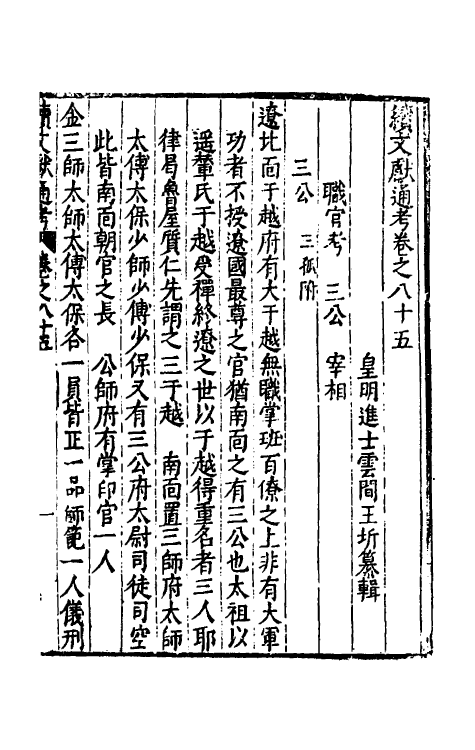 續文獻通考卷之八十五
皇明進士雲間王圻纂輯
職官考 三公 宰相
三公 三孤附
遼北面于越府有大于越無職掌班百僚之上非有大軍
功者不授遼國最尊之官猶南面之有三公也太祖以
遥輦氏于越受禪終遼之世以于越得重名者三人耶
律曷魯屋質仁先謂之三于越 南面置三師府太師
太傅太保少師少傅少保又有三公府太尉司徒司空
此皆南面朝官之長 公師府有掌印官一人
金三師太師太傅太保各一員皆正一品師範一人儀刑
續文獻通考 卷之八十五 一